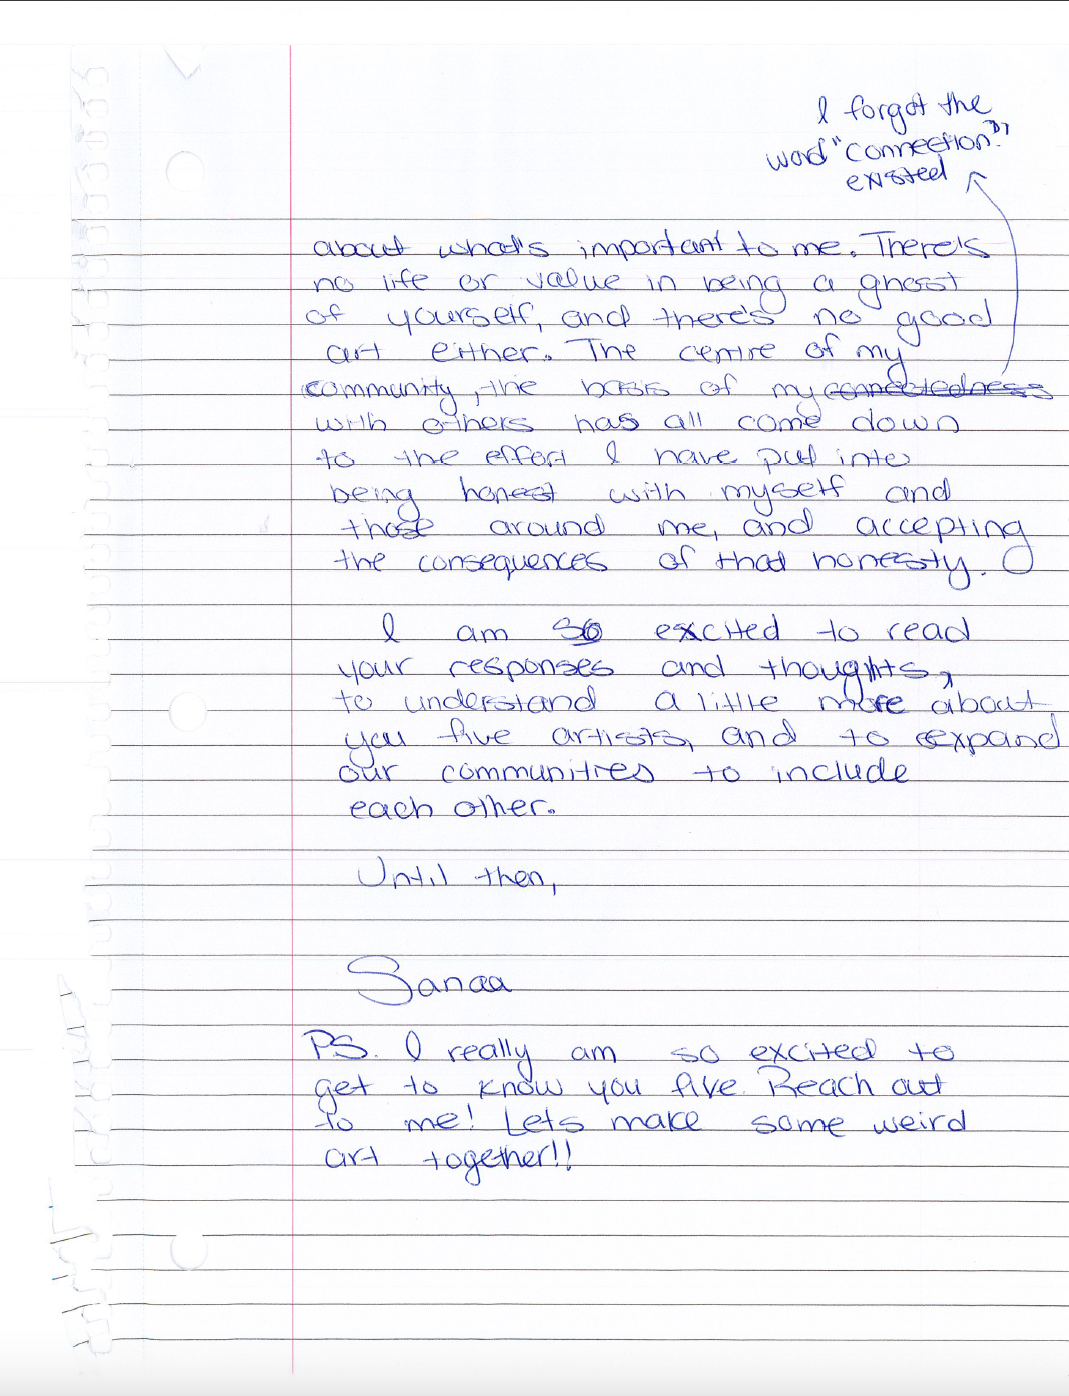 I forgot the
word "connection"
existed
about what's important to me. There's
no life or value in being a ghost
of yourself, and there's no good
art either. The centre of my
community, the basis of my connectedness
with others has all come down
to the effort I have put into
being honest with myself and
those around me, and accepting
the consequences of that honesty.
I am so excited to read
your responses and thoughts,
to understand a little more about
you five artists, and to expand
our communities to include
each other.
Until then,
Sanaa
P.S. I really am so excited to
get to know you five. Reach out
to me! Lets make some weird
art together!!